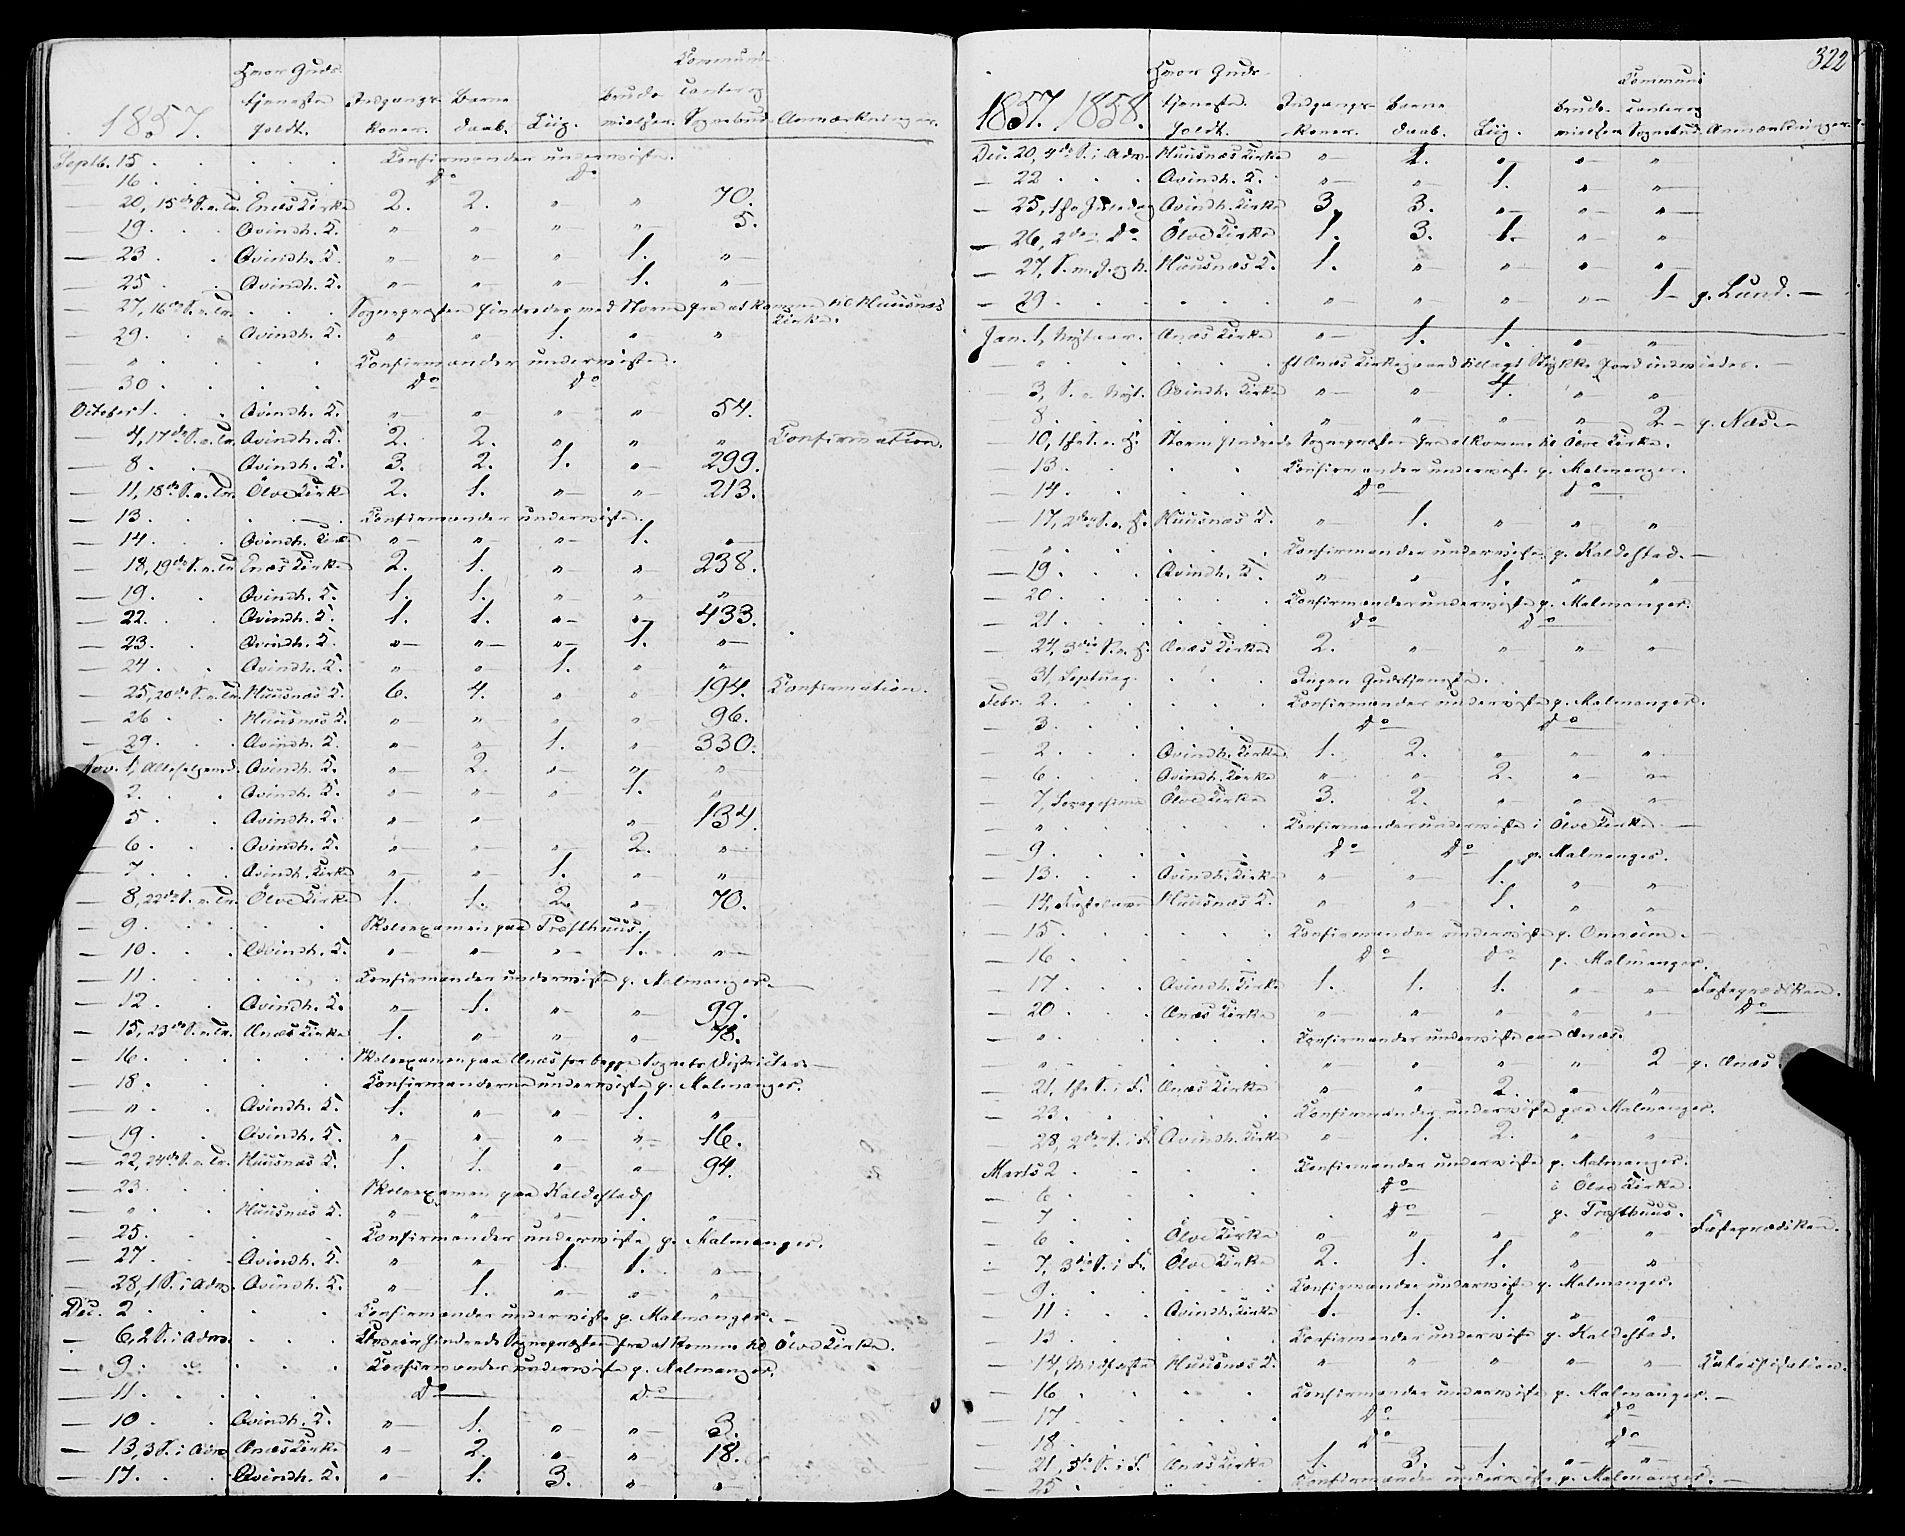 1857. Hvor Guds tjeneste holdt. Indgangs Koner. Barne daab. Liig. Brude vielser. Communi canter og Sognebud. Anmærkninger.
Septb. 15 . . . . Confirmander underviiste.
— 16 . . . . Do Do
— 20, 15de S. e. Tr. Enæs Kirke 2. 2. " " 70.
— 19. . . Qvindh. K. " " " " 5.
— 23 . . Qvindh. K. " " " 1. "
— 25. . . Qvindh. K. " " " 1. "
— 27, 16de S. e. Tr. . . . Sognepræsten hindredes med Storm fra at komme til Huusnæs Kirke.
— 29. . . Qvindh. K. " " 1. " "
— " . . . . Confirmander underviiste.
— 30 . . . . Do Do
October 1. . . Qvindh. K. " " " " 54.
— 4, 17de S. e. Tr. Qvindh. K. 2. 2. " " " Confirmation.
— 8. . . Qvindh. K. 3. 2. 1. " 299.
— 11, 18de S. e. Tr. Ölve Kirke 2. 1. " " 213.
— 13. . . . Confirmander underviiste.
— 14. . . Qvindh. Kirke " " " 1. "
— 18, 19de S. e. Tr. Enæs Kirke 2. 1. " " 238.
— 19. . . Qvindh. K. 1. 1. " " "
— 22. . . Qvindh. K. 1. 1. " " 433.
— 23. . . Qvindh. K. " " " 1. "
— 24 . . Qvindh. K. " " 1. " "
— 25, 20de S. e. Tr. Huusnæs K. 6. 4. " " 194. Confirmation.
— 26 . . Huusnæs K. " " " " 96.
— 29. . . Qvindh. K. " " 1. " 330.
Nov. 1, Allehelgensd. Qvindh. K. " 2. " " "
— 2. . . Qvindh. K. " " " 1. "
— 5 . . Qvindh. K. " " " 134.
— 6. . . Qvindh. K. " " " 2. "
— 7 . . Qvindh. Kirke " " 1. " "
— 8, 22de S. e. Tr. Ölve Kirke 1. 1. 2. " 70.
— 9. . . . Skoleexamen paa Træsthuus.
— 10. . . Qvindh. K. " " " 1. "
— 11. . . . Confirmander underviiste p. Malmanger. —
— 12. . . Qvindh. K. " 1. " " 99.
— 15, 23de S. e. Tr. Ænæs Kirke 1. " " " 78.
— 16. . . . Skoleexamen paa Ænæs for begge Sognets Districter. —
— 18. . . . Confirmanderne underviiste p. Malmanger.
— " . . Qvindh. K. 1. " " 1. "
— 19. . . Qvindh. K. " " " " 16.
— 22, 24de S. e. Tr. Huusnæs K. 1. 1. " " 94.
— 23. . . . Skoleexamen paa Kaldestad
— " . . Huusnæs K. " " " " "
— 25. . . . Confirmander underviiste p. Malmanger.
— 27. . . Qvindh. K. " " 1. 1. "
— 28, 1 S. i Adv. Qvindh. K. " 1. " " "
Dec. 2 . . . . Confirmander underviiste p. Malmanger. —
— 6, 2 S. i Adv. . . . Uveir hindrede Sognepræsten fra at komme til Ölve Kirke.
— 9. . . . Confirmander underviiste p. Malmanger.
— 11. . . . Do Do
— 10. . . Qvindh. K. " 1. " " 3.
— 13, 3 S. i Adv. Ænæs Kirke " 2. " " 18.
— 17. . . Qvindh. K. " 1. 3. " "
322
1857. 1858. Hvor Guds tjeneste. holdt. Indgangs Koner. Barne daab. Liig. Brude vielser Communi canter og Sognebud. Anmærkninger.
Dec. 20, 4de S. i Adv. Huusnæs Kirke " 1. " " "
— 22 . . . Qvindh. K. " " 1. " "
— 25, 1ste Juledag Qvindh. Kirke 3. 3. " " "
— 26, 2den Do Ölve Kirke 1. 3. 1. " "
— 27, S. m. J. og N. Huusnæs K. 1. " " " "
— 29. . . . " " " " 1 p. Lund. —
Jan. 1, Nytaar. Ænæs Kirke " 1. 1. " "
— " . . . . et Ænæs Kirkegaard tillagt Stykke Jord indviedes. —
— 3, S. e. Nyt. Qvindh. Kirke " " 4. " "
— 8. . . . " " " " 2 p. Næs. —
— 10, 1ste S. e. H. Storm hindrede Sognepræsten fra at komme til Ölve Kirke.
— 13. . . . Confirmander underviiste p. Malmanger.
— 14. . . . Do Do
— 17, 2den S. e. H. Huusnæs K. " 1. " " "
— " . . . . Confirmander underviiste p. Kaldestad. —
— 19. . . Qvindh. K. " " 1. " "
— 20. . . . Confirmander underviiste p. Malmanger.
— 21. . . . Do Do
— 24, 3die S. e. H. Ænæs Kirke 2. " " " "
— 31, Septuag. . . Ingen Gudstjeneste.
Febr. 2. . . . Confirmander underviiste p. Malmanger.
— 3. . . . Do Do
— 2 . . . Qvindh. Kirke 1. 2. " " "
— 6. . . Qvindh. Kirke " " 2. " "
— 7, Sexagesima Ölve Kirke 3. 2. " " "
— " . . . . Confirmander underviiste i Ölve Kirke —
— 9. . . . Do Do p. Malmanger.
— 13. . . Qvindh. Kirke " " 1. " "
— 14, Fastelavn Huusnæs K. " " 1. " "
— 15. . . . Confirmander underviiste p. Omvikm. —
— 16. . . . Do Do p. Malmanger.
— 17 . . Qvindh. Kirke 1. 1. 1. " " Fasteprædiken.
— 20. . . Ænæs Kirke " " " " " Do
— " . . . Confirmander underviiste paa Ænæs.
— " . . . " " " " 2 p. Ænæs.
— 21, 1ste S. i F. Ænæs Kirke " " 2. " "
— 23. . . . Confirmander underviiste paa Malmanger.
— 28, 2den S. i F. Qvindh. Kirke " 1. 2. " "
Marts 2 . . . Confirmander underviiste p. Malmanger.
— 6 . . . Do i Ölve Kirke.
— 7 . . . Do — p. Træsthuus.
— 6. . . Ölve Kirke " " " " " Fasteprædiken.
— 7, 3die S. i F. Ölve Kirke 2. 1. 1. " "
— 9. . . . Confirmander underviiste p. Malmanger.
— 11. . . Qvindh. Kirke 1. 1. 1. " "
— 13 . . . Confirmander underviiste p. Kaldestad.
— 14, Midfaste Huusnæs K. " " " " " Catechisation.
— 16 . . . Confirmander underviiste p. Malmanger. —
— 17 . . . Do Do
— 18. . . . Do Do
— 21, 5te S. i F. Ænæs Kirke 1. 3. 1. " "
— 25 . . . Confirmander underviiste p. Malmanger. —